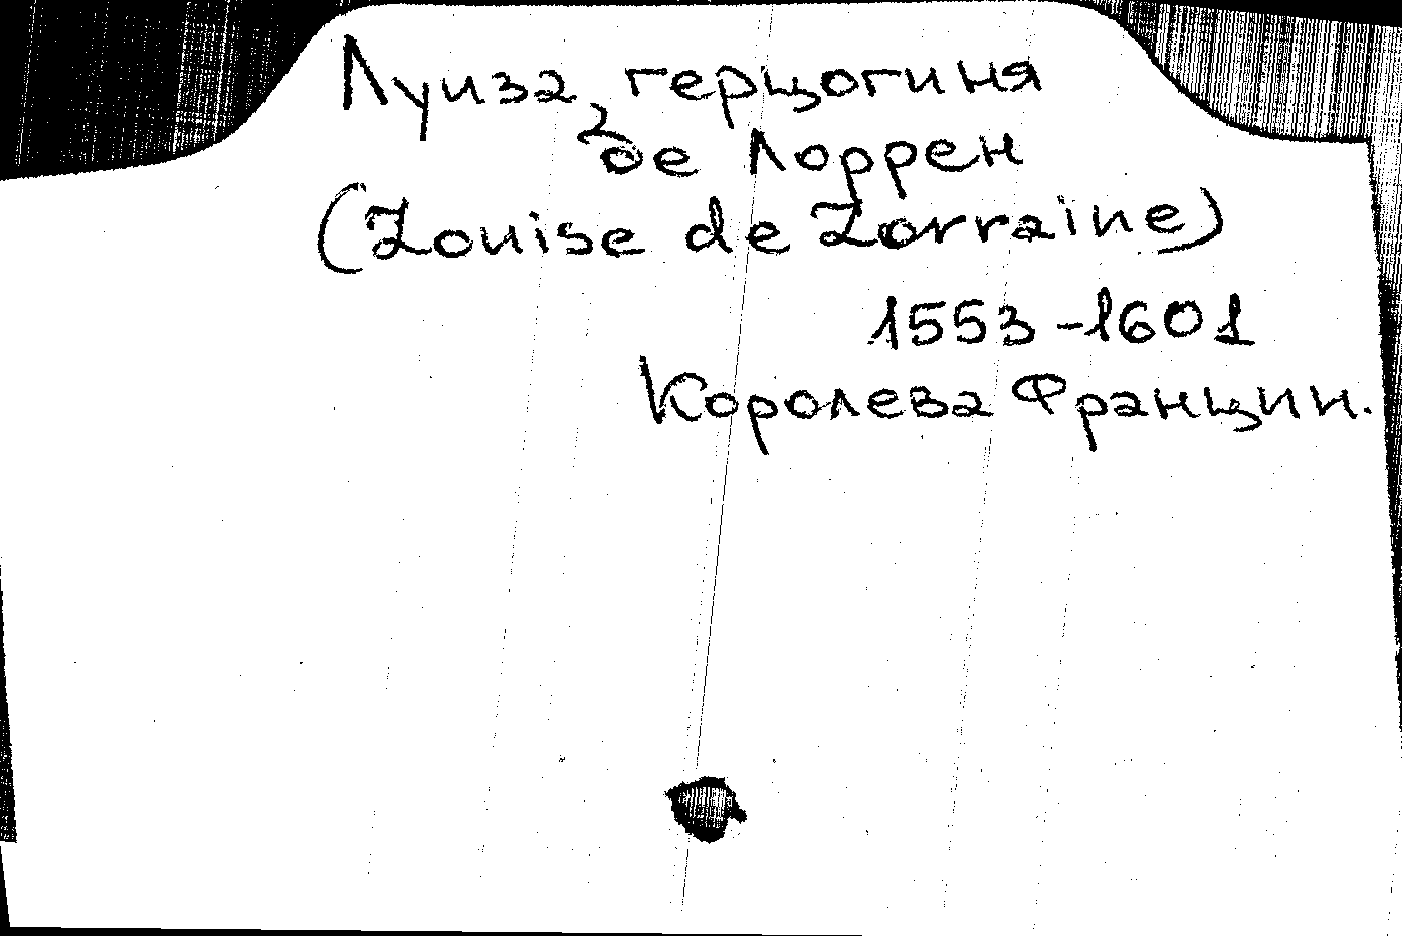 Луиза, герцогиня
де Лоррен
(Louise de Lorraine)
1553-1601
Королева Франции.